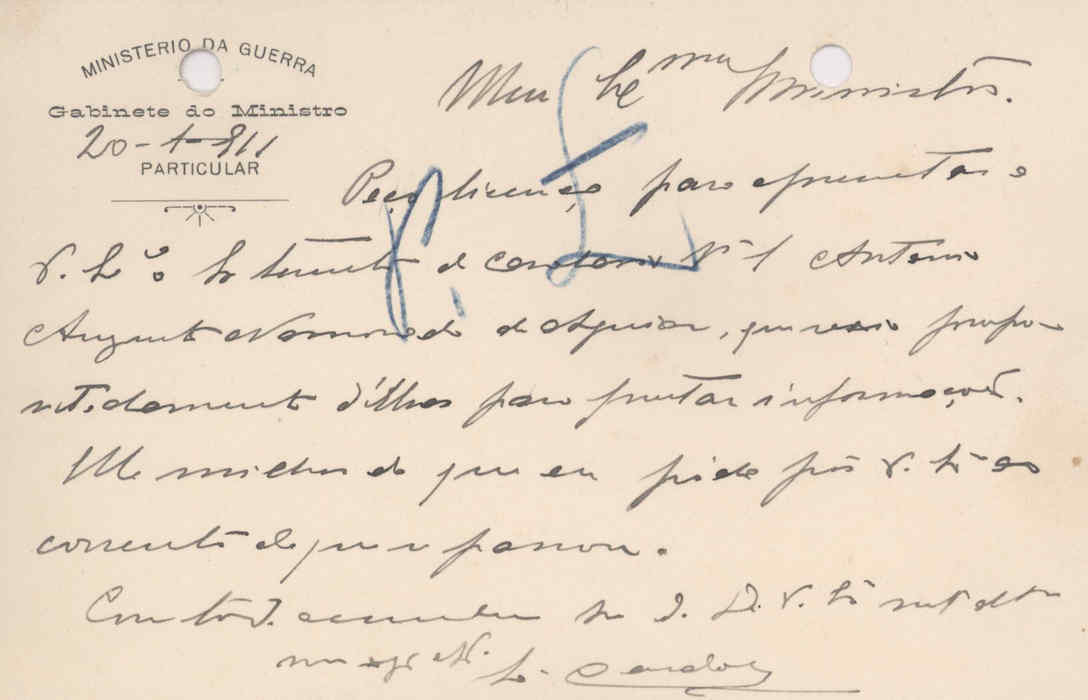 MINISTERIO DA GUERRA
Gabinete do Ministro
20-1-911
PARTICULAR
Meu Ex^mo Ministro.
Peço licença para apresentar a
V. Ex.ª o tenente de caçadores Nº 1 Antonio
Augusto Namorado de Aguiar, que veio propo-
sitadamente d'Elvas para prestar informações.
Elle melhor do que eu póde pôr V. Exª ao
corrente do que se passou.
Com toda
de V. Exª
Cardoso